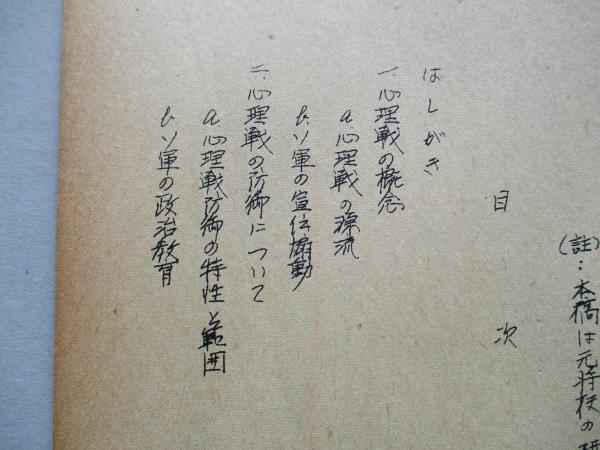 (註):本稿は元将校の研
目次
はしがき
一、心理戦の概念
a.心理戦の源流
b.ソ軍の宣伝煽動
二、心理戦の防御について
a.心理戦防御の特性と範囲
b.ソ軍の政治教育